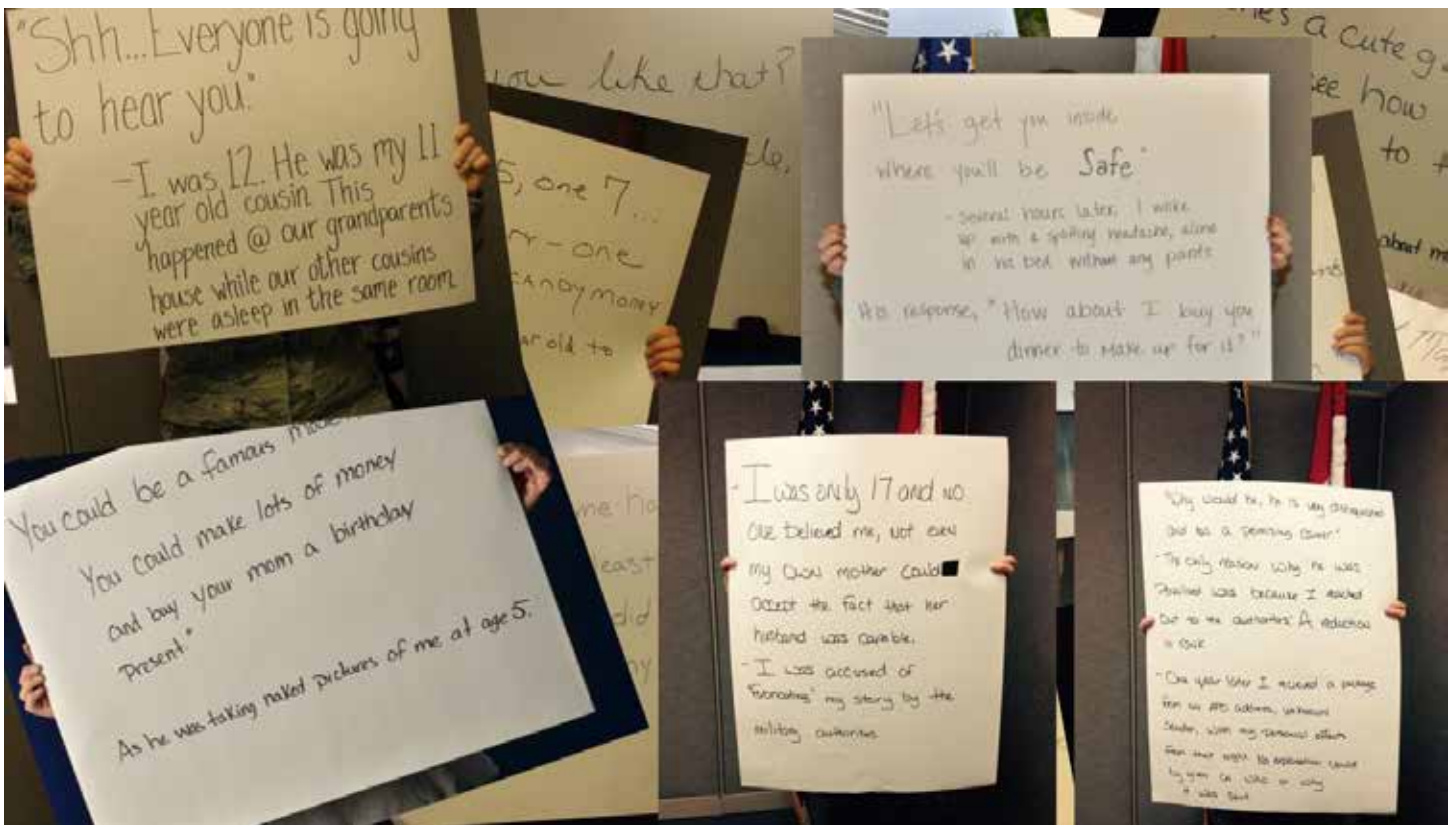 "Shh...Everyone is going
to hear you."
-I was 12. He was my 11
year old cousin. This
happened @ our grandparents
house while our other cousins
were asleep in the same room.
you like that?
5, one 7...
one
CANDY MONEY
old to
"Let's get you inside
where you'll be Safe"
- Several hours later, I woke
up with a spliting headache, alone
in his bed without any pants
His response, "How about I buy you
dinner to make up for it?"
a cute
see how
to
about
You could be a famous
You could make lots of money
and buy your mom a birthday
present."
As he was taking naked pictures of me at age 5.
east
did
-I was only 17 and no
one believed me, not even
my own mother could
accept the fact that her
husband was capable.
- I was accused of
my story by the
military authorities
"Why would he, he is very distinguished
and has a promising career"
- The only reason why he was
punished was because I reached
out to the authorities. A reduction
in rank
- One year later I received a package
from an APO address, unknown
sender, with my personal effects
from that night. No explanation could
be given on who or why
it was sent